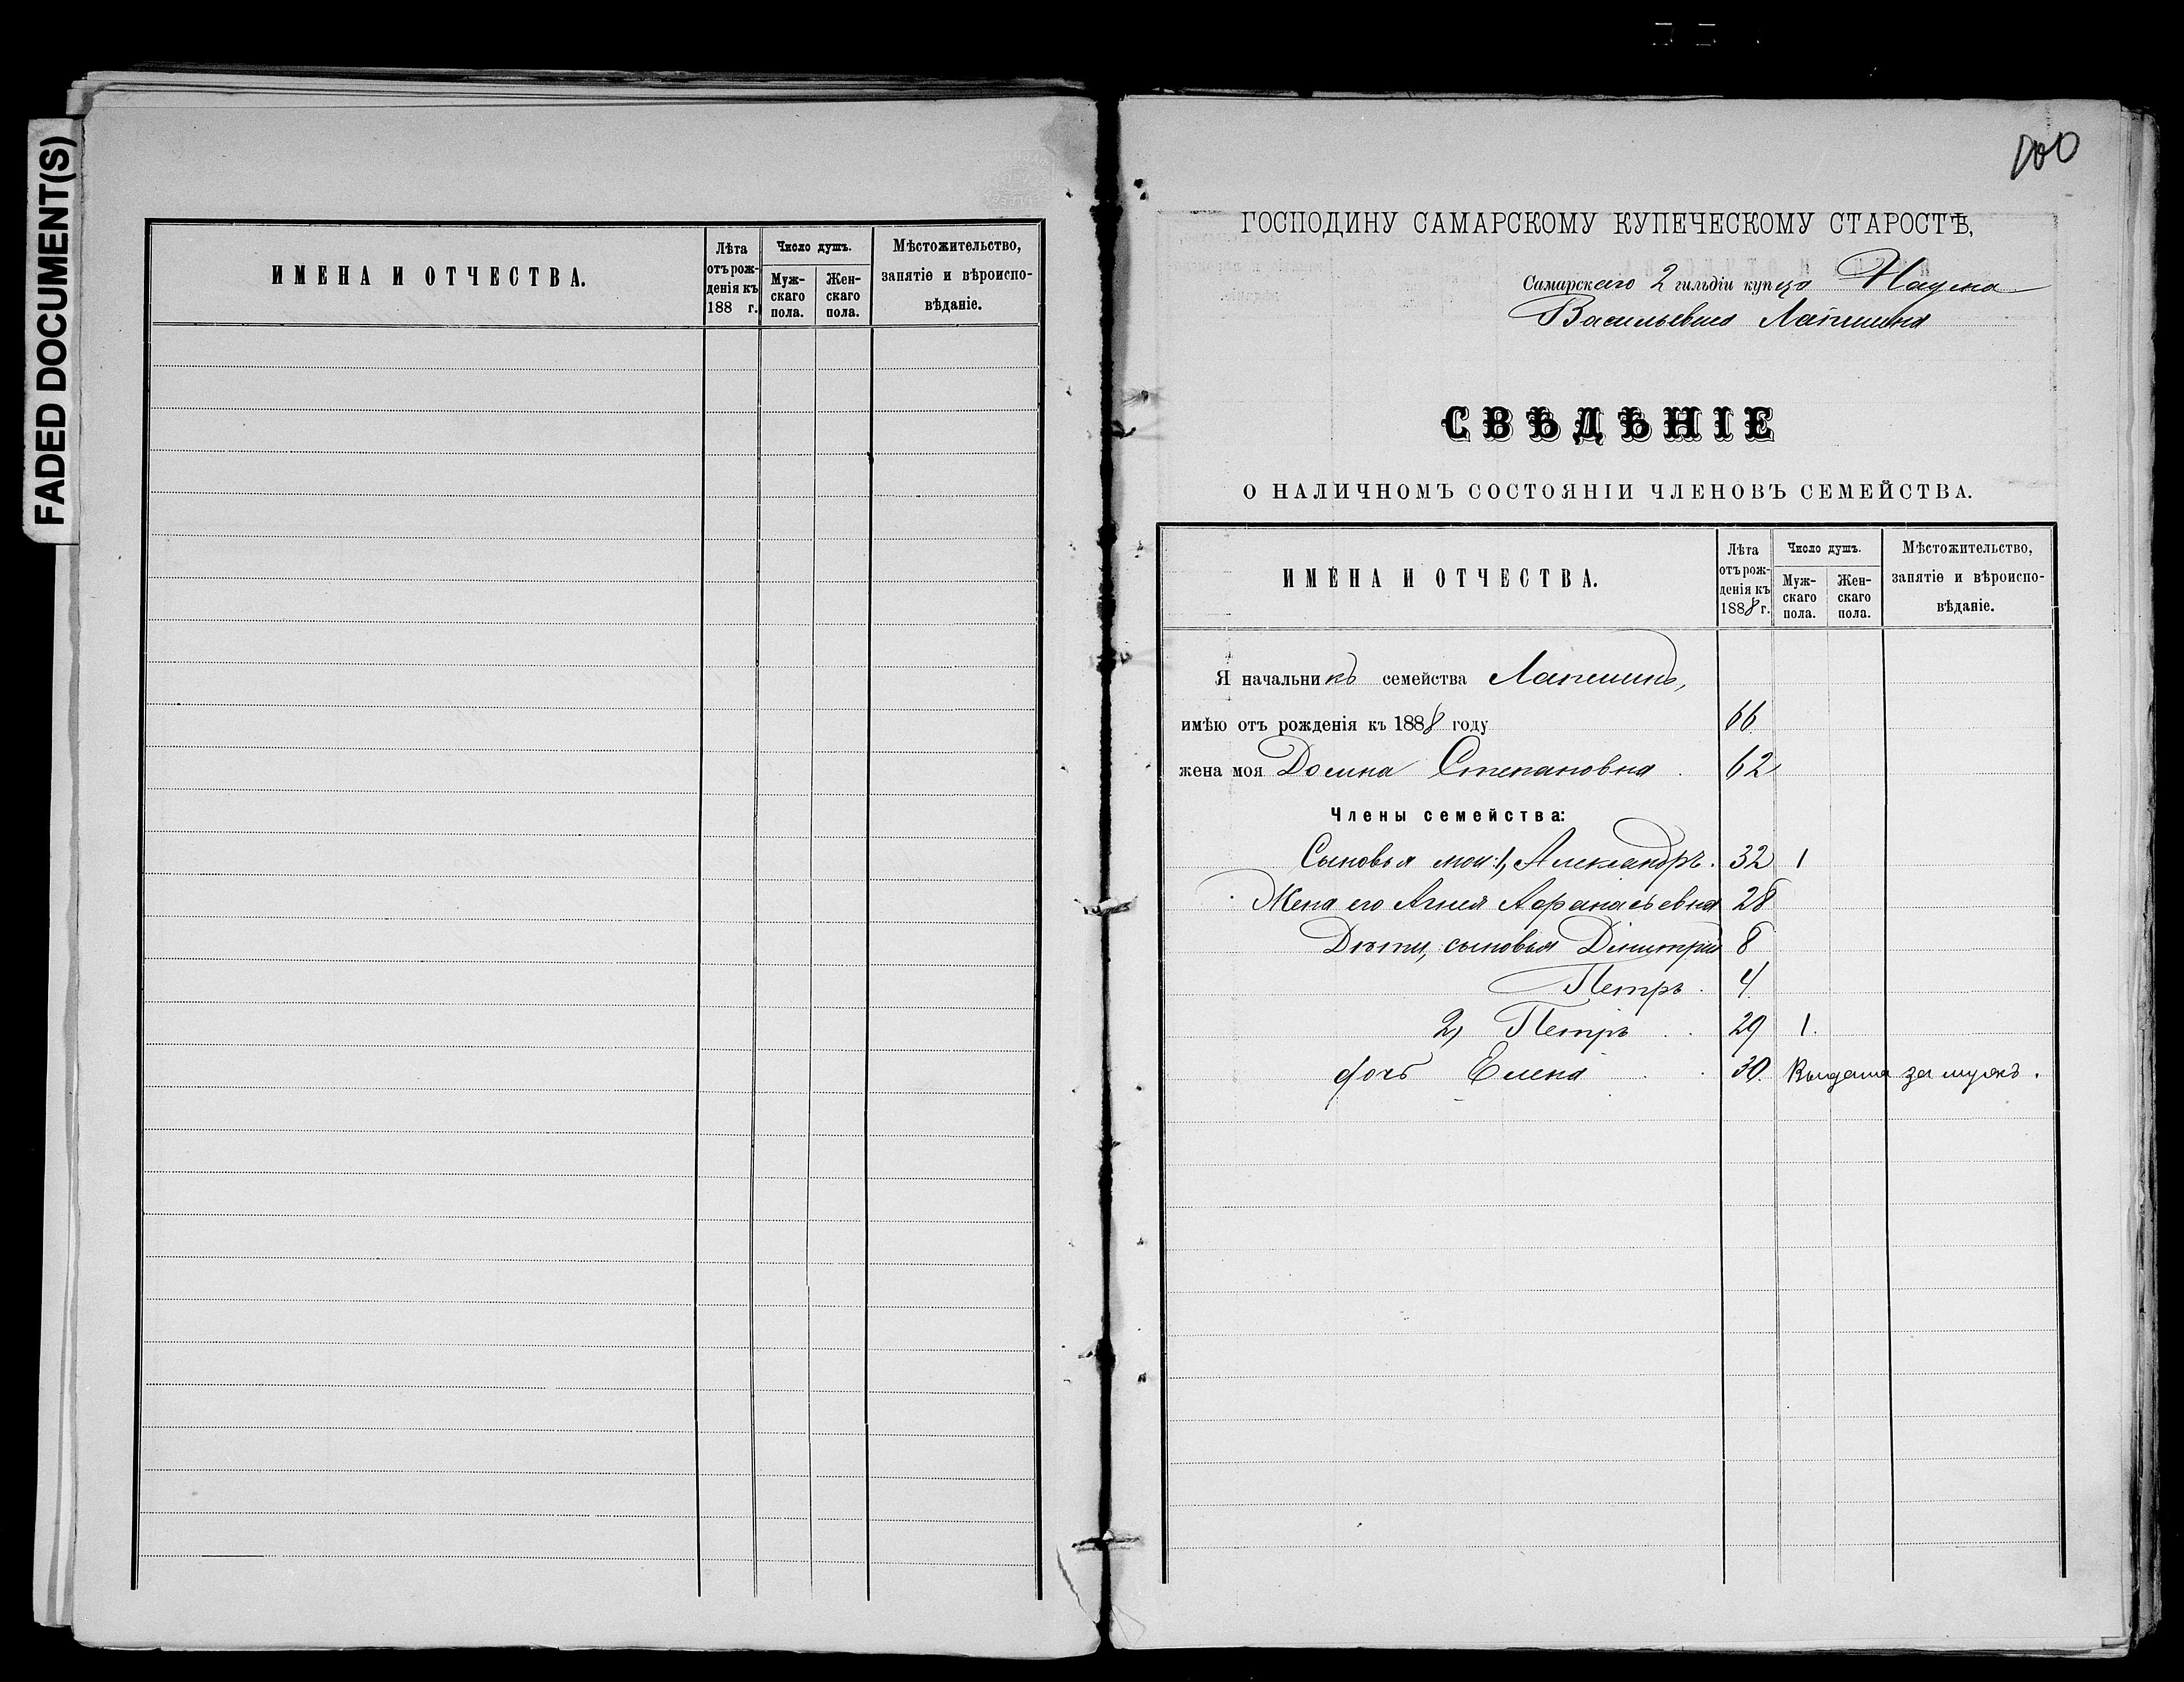 FADED DOCUMENT(S)
ИМЕНА И ОТЧЕСТВА.
Лѣта отъ рожденія къ 188 г.
Число душъ.
Мужскаго пола.
Женскаго пола.
Мѣстожительство, занятіе и вѣроисповѣданіе.
100
ГОСПОДИНУ САМАРСКОМУ КУПЕЧЕСКОМУ СТАРОСТѢ,
Самарскаго 2 гильдіи купца Наума
Васильевича Лапшина
СВѢДѢНІЕ
О НАЛИЧНОМЪ СОСТОЯНІИ ЧЛЕНОВЪ СЕМЕЙСТВА.
ИМЕНА И ОТЧЕСТВА.
Лѣта отъ рожденія къ 1888 г.
Число душъ.
Мужскаго пола.
Женскаго пола.
Мѣстожительство, занятіе и вѣроисповѣданіе.
Я начальникъ семейства Лапшинъ,
имѣю отъ рожденія къ 1888 году 66
жена моя Домна Степановна . 62
Члены семейства:
Сыновья мои: 1, Александръ . 32 1
Жена его Агнея Афанасьевна 28
Дѣти, сыновья Димитрій 8
Петръ . 4
2, Петръ . . 29 1.
дочь Елена . . 30. Выдана за мужъ .